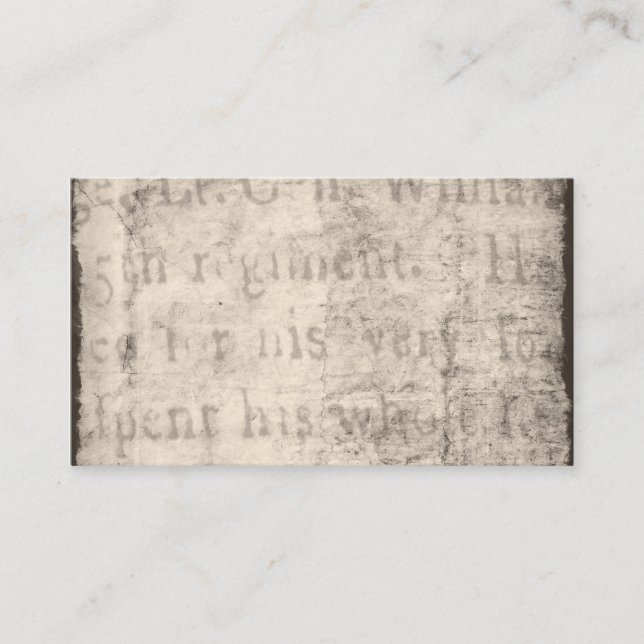 ge, Lt. G n. Willia
5th regiment. H
ced for his very lo
ſpent his whol